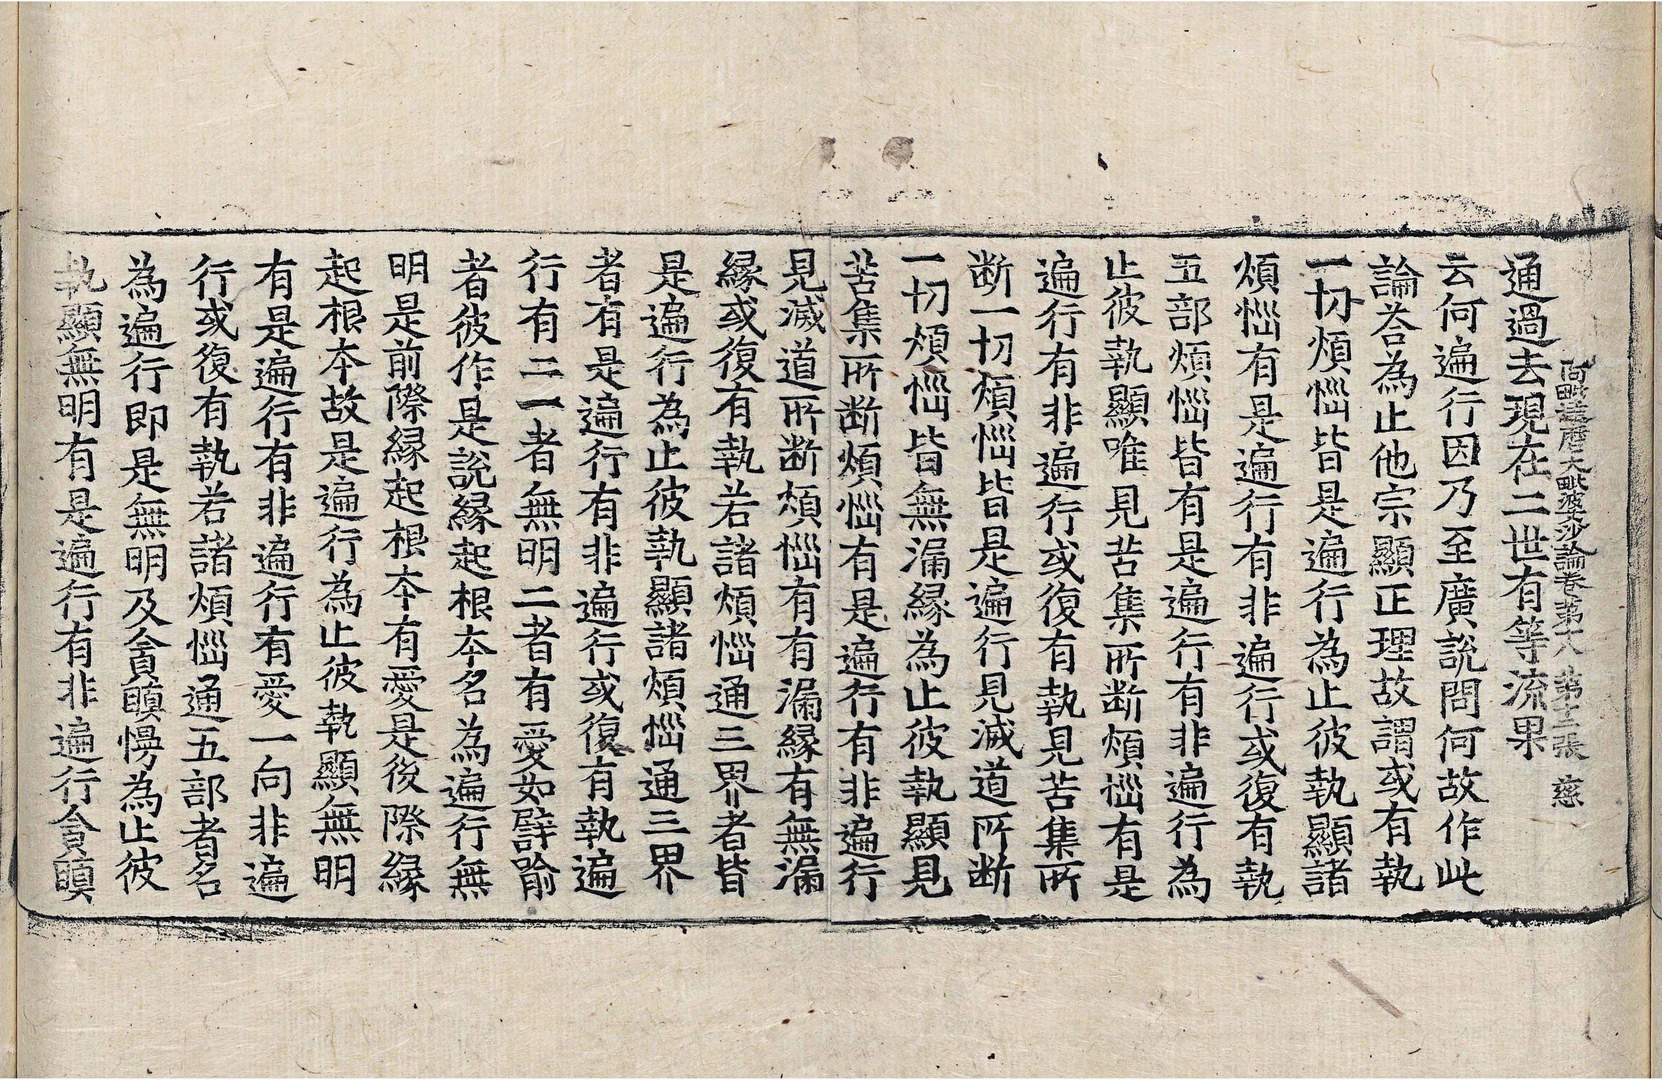 阿毗達磨大毗婆沙論卷第十八 第十二張 慈
通過去現在二世有等流果
云何遍行因乃至廣說問何故作此
論荅為止他宗顯正理故謂或有執
一切煩惱皆是遍行為止彼執顯諸
煩惱有是遍行有非遍行或復有執
五部煩惱皆有是遍行有非遍行為
止彼執顯唯見苦集所断煩惱有是
遍行有非遍行或復有執見苦集所
断一切煩惱皆是遍行見滅道所断
一切煩惱皆無漏緣為止彼執顯見
苦集所断煩惱有是遍行有非遍行
見滅道所断煩惱有有漏緣有無漏
緣或復有執若諸煩惱通三界者皆
是遍行為止彼執顯諸煩惱通三界
者有是遍行有非遍行或復有執遍
行有二一者無明二者有愛如譬喻
者彼作是說緣起根本名為遍行無
明是前際緣起根本有愛是後際緣
起根本故是遍行為止彼執顯無明
有是遍行有非遍行有愛一向非遍
行或復有執若諸煩惱通五部者名
為遍行即是無明及貪瞋慢為止彼
執顯無明有是遍行有非遍行貪瞋